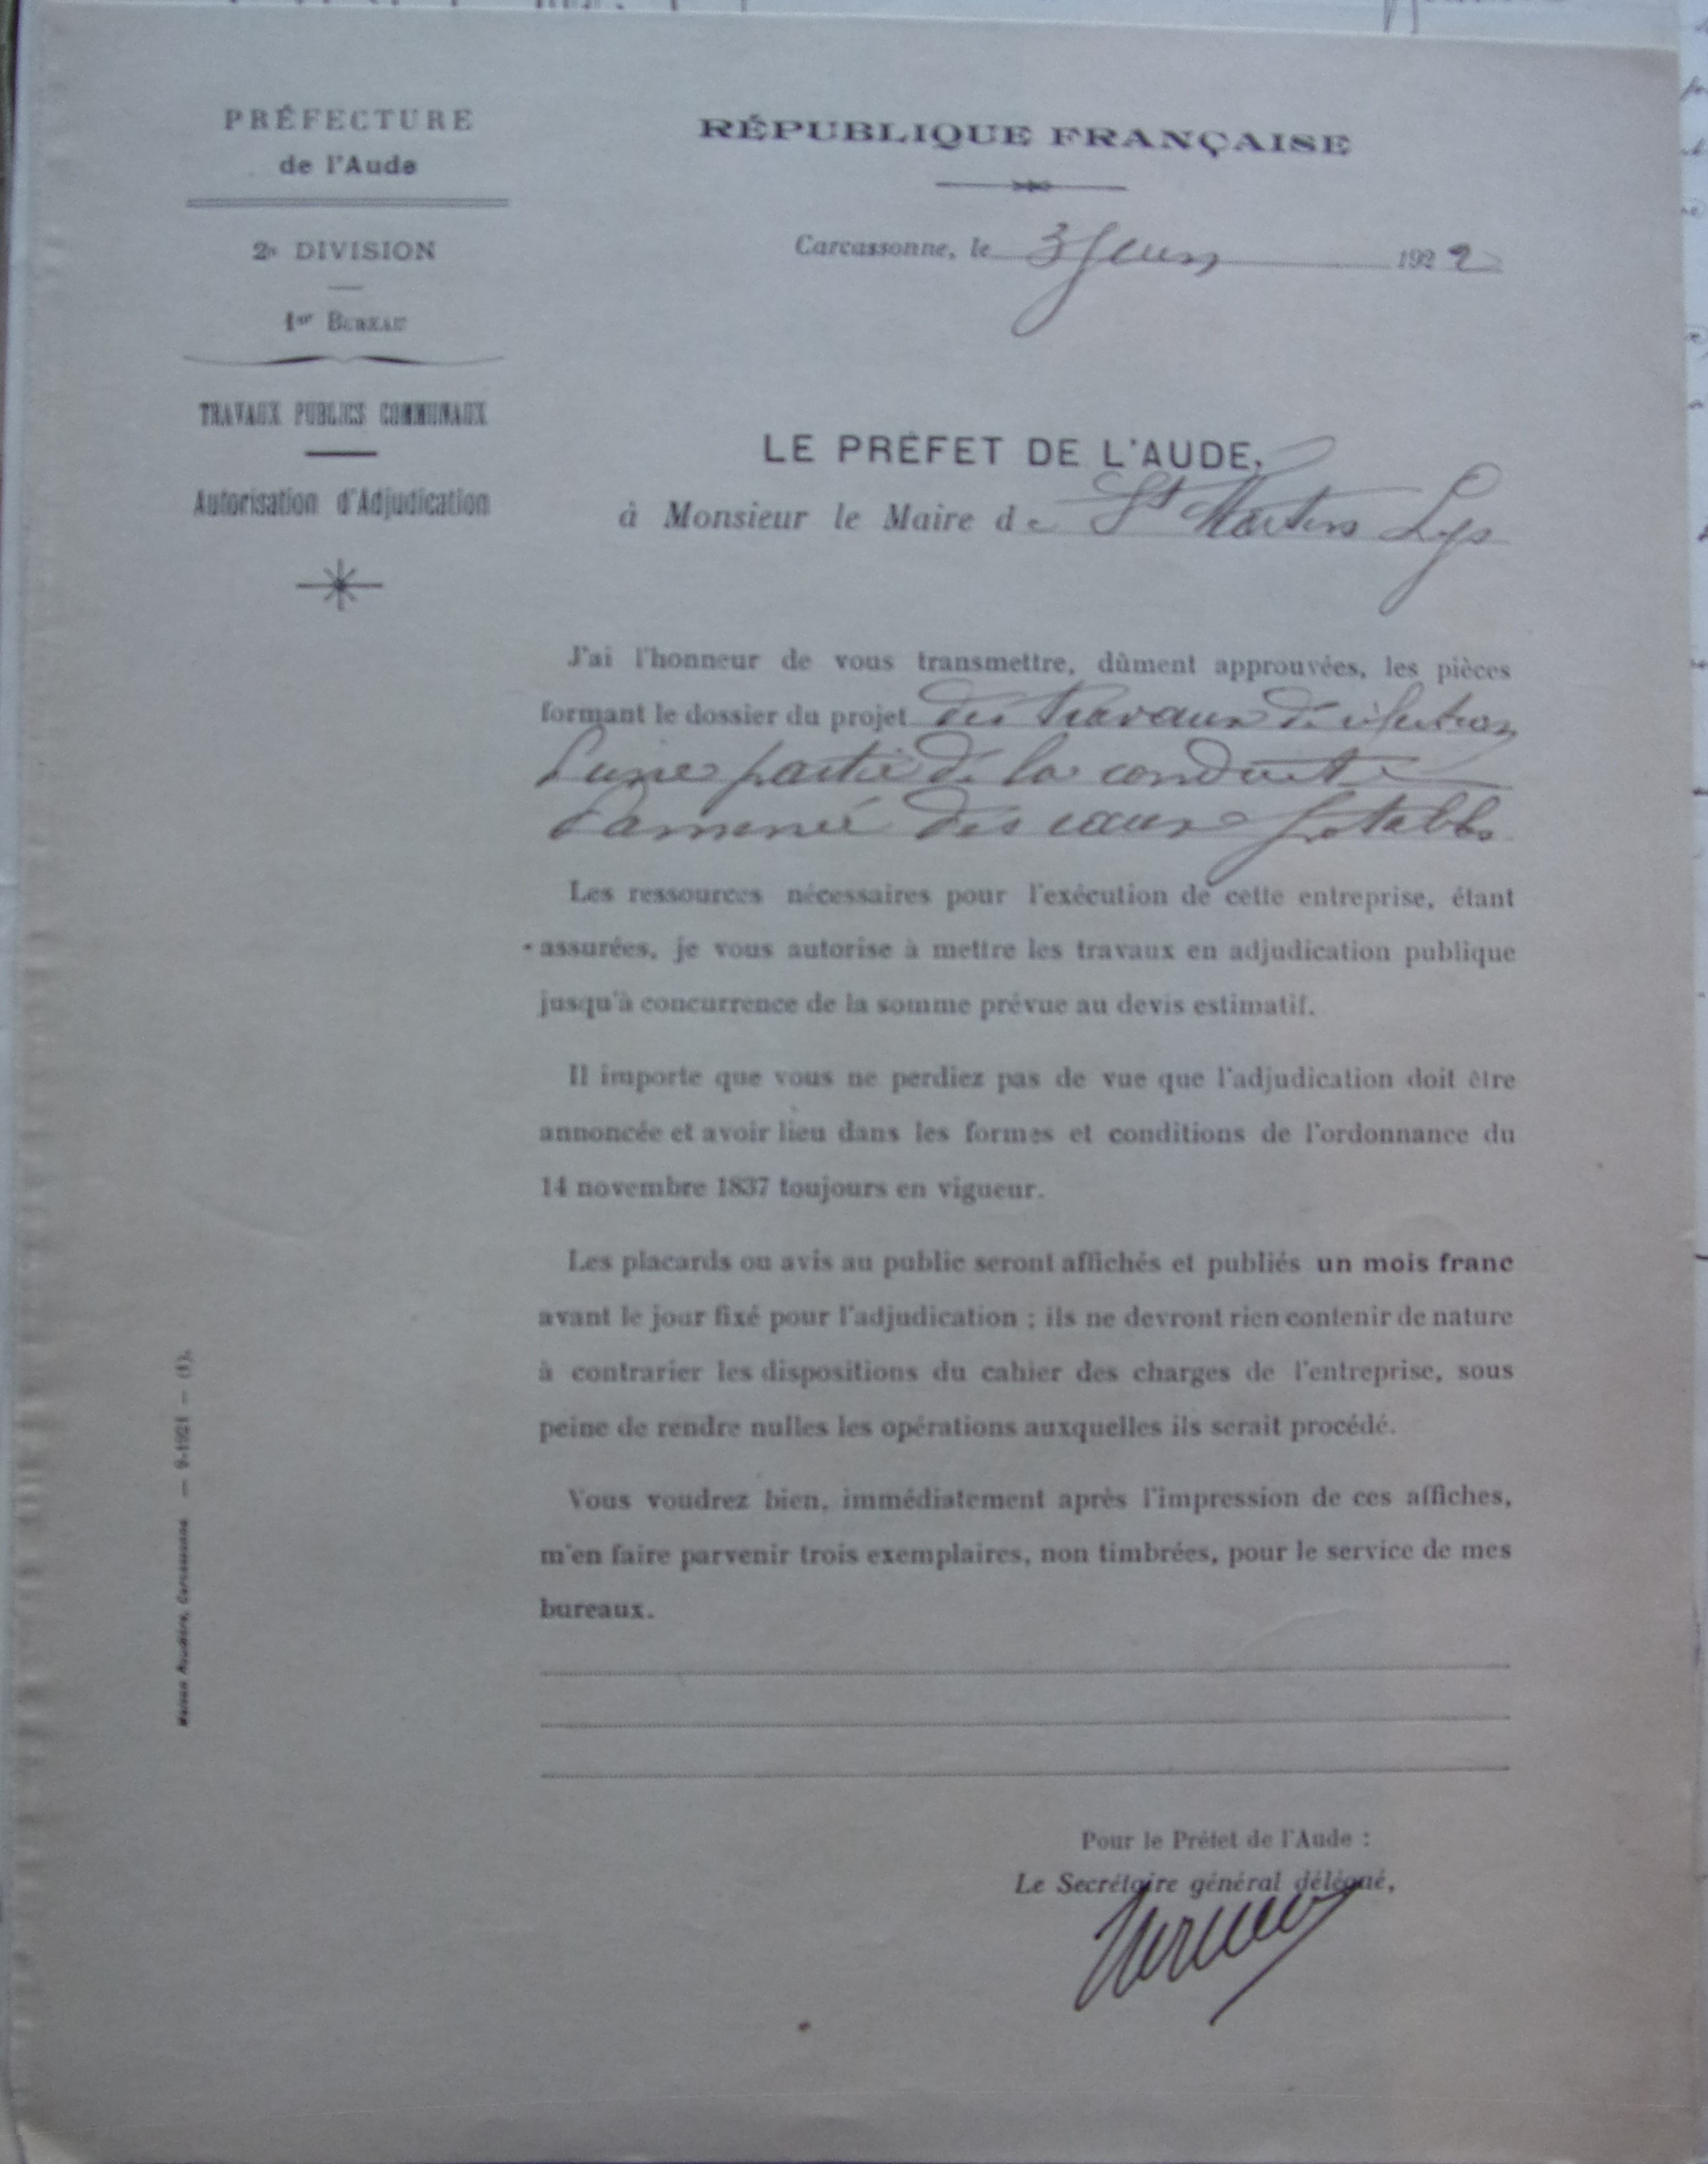 PRÉFECTURE
de l'Aude
2e DIVISION
1er BUREAU
TRAVAUX PUBLICS COMMUNAUX
Autorisation d'Adjudication
RÉPUBLIQUE FRANÇAISE
Carcassonne, le 3 1922
LE PRÉFET DE L'AUDE,
à Monsieur le Maire de St Martin Lys
J'ai l'honneur de vous transmettre, dûment approuvées, les pièces
formant le dossier du projet des travaux de réfection
d'une partie de la conduite
d'amenée des eaux potables
Les ressources nécessaires pour l'exécution de cette entreprise, étant
assurées, je vous autorise à mettre les travaux en adjudication publique
jusqu'à concurrence de la somme prévue au devis estimatif.
Il importe que vous ne perdiez pas de vue que l'adjudication doit être
annoncée et avoir lieu dans les formes et conditions de l'ordonnance du
14 novembre 1837 toujours en vigueur.
Les placards ou avis au public seront affichés et publiés un mois franc
avant le jour fixé pour l'adjudication ; ils ne devront rien contenir de nature
à contrarier les dispositions du cahier des charges de l'entreprise, sous
peine de rendre nulles les opérations auxquelles ils serait procédé.
Vous voudrez bien, immédiatement après l'impression de ces affiches,
m'en faire parvenir trois exemplaires, non timbrées, pour le service de mes
bureaux.
Pour le Préfet de l'Aude :
Le Secrétaire général délégué,
Carcassonne — 9-1921 — (1).